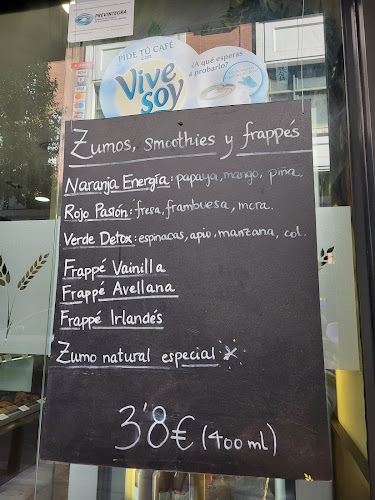 PREVINTEGRA
PIDE TU CAFÉ
con
Vive
soy
¿A qué esperas
a probarlo?
Zumos, smoothies y frappés
Naranja Energía: papaya, mango, piña.
Rojo Pasión: fresa, frambuesa, mora.
Verde Detox: espinacas, apio, manzana, col.
Frappé Vainilla
Frappé Avellana
Frappé Irlandés
Zumo natural especial
3'8€ (400 ml)